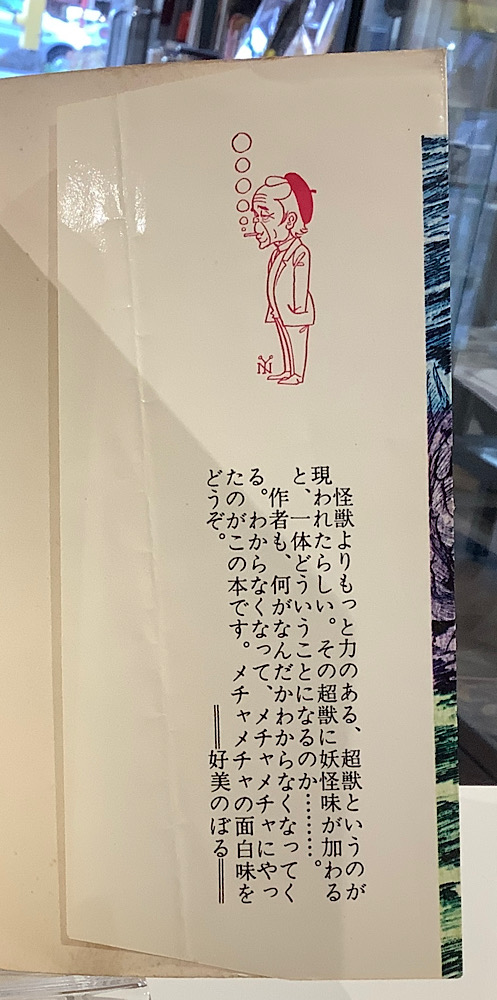 怪獣よりもっと力のある、超獣というのが
現われたらしい。その超獣に妖怪味が加わる
と、一体どういうことになるのか………。
作者も、何がなんだかわからなくなってく
る。わからなくなって、メチャメチャにやっ
たのがこの本です。メチャメチャの面白味を
どうぞ。
══好美のぼる══